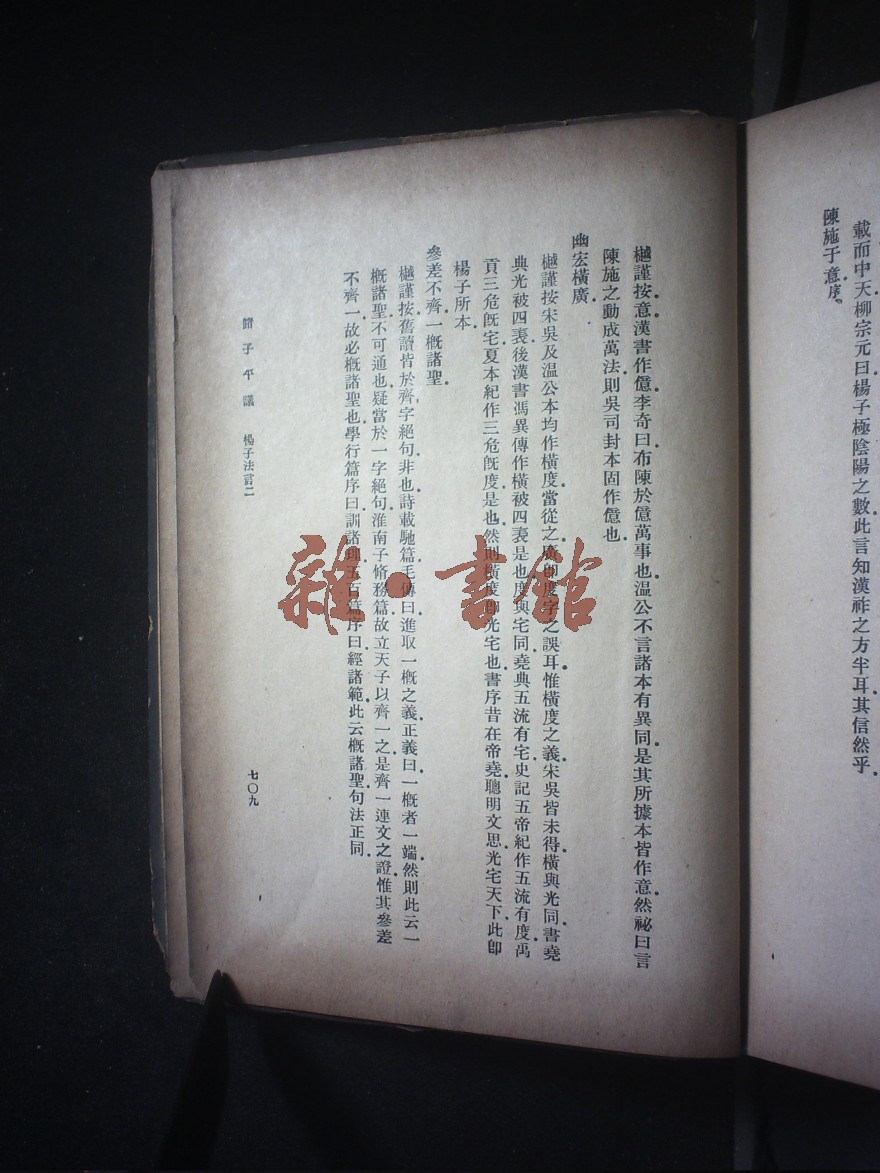 載而中天柳宗元曰楊子極陰陽之數此言知漢祚之方半耳其信然乎.
陳施于意序.
樾謹按.意漢書作億.李奇曰布陳於億萬事也.温公不言諸本有異同.是其所據本皆作意.然祕曰言
陳施之動成萬法.則吳司封本固作億也.
幽宏橫廣.
樾謹按.宋吳及温公本均作橫度.當從之.廣卽度字之誤耳.惟橫度之義.宋吳皆未得.橫與光同.書堯
典光被四表.後漢書馮異傳作橫被四表是也.度與宅同.堯典五流有宅.史記五帝紀作五流有度.禹
貢三危旣宅.夏本紀作三危旣度.是也.然則橫度卽光宅也.書序昔在帝堯.聰明文思.光宅天下.此卽
楊子所本.
參差不齊.一概諸聖.
樾謹按.舊讀皆於齊字絕句.非也.詩載馳篇毛傳曰進取一概之義.正義曰一概者一端.然則此云一
概諸聖不可通也.疑當於一字絕句.淮南子脩務篇故立天子以齊一之.是齊一連文之證.惟其參差
不齊一.故必概諸聖也.學行篇序曰訓諸理.五百篇序曰經諸範.此云概諸聖.句法正同.
諸子平議 楊子法言二
七〇九
雜·書館